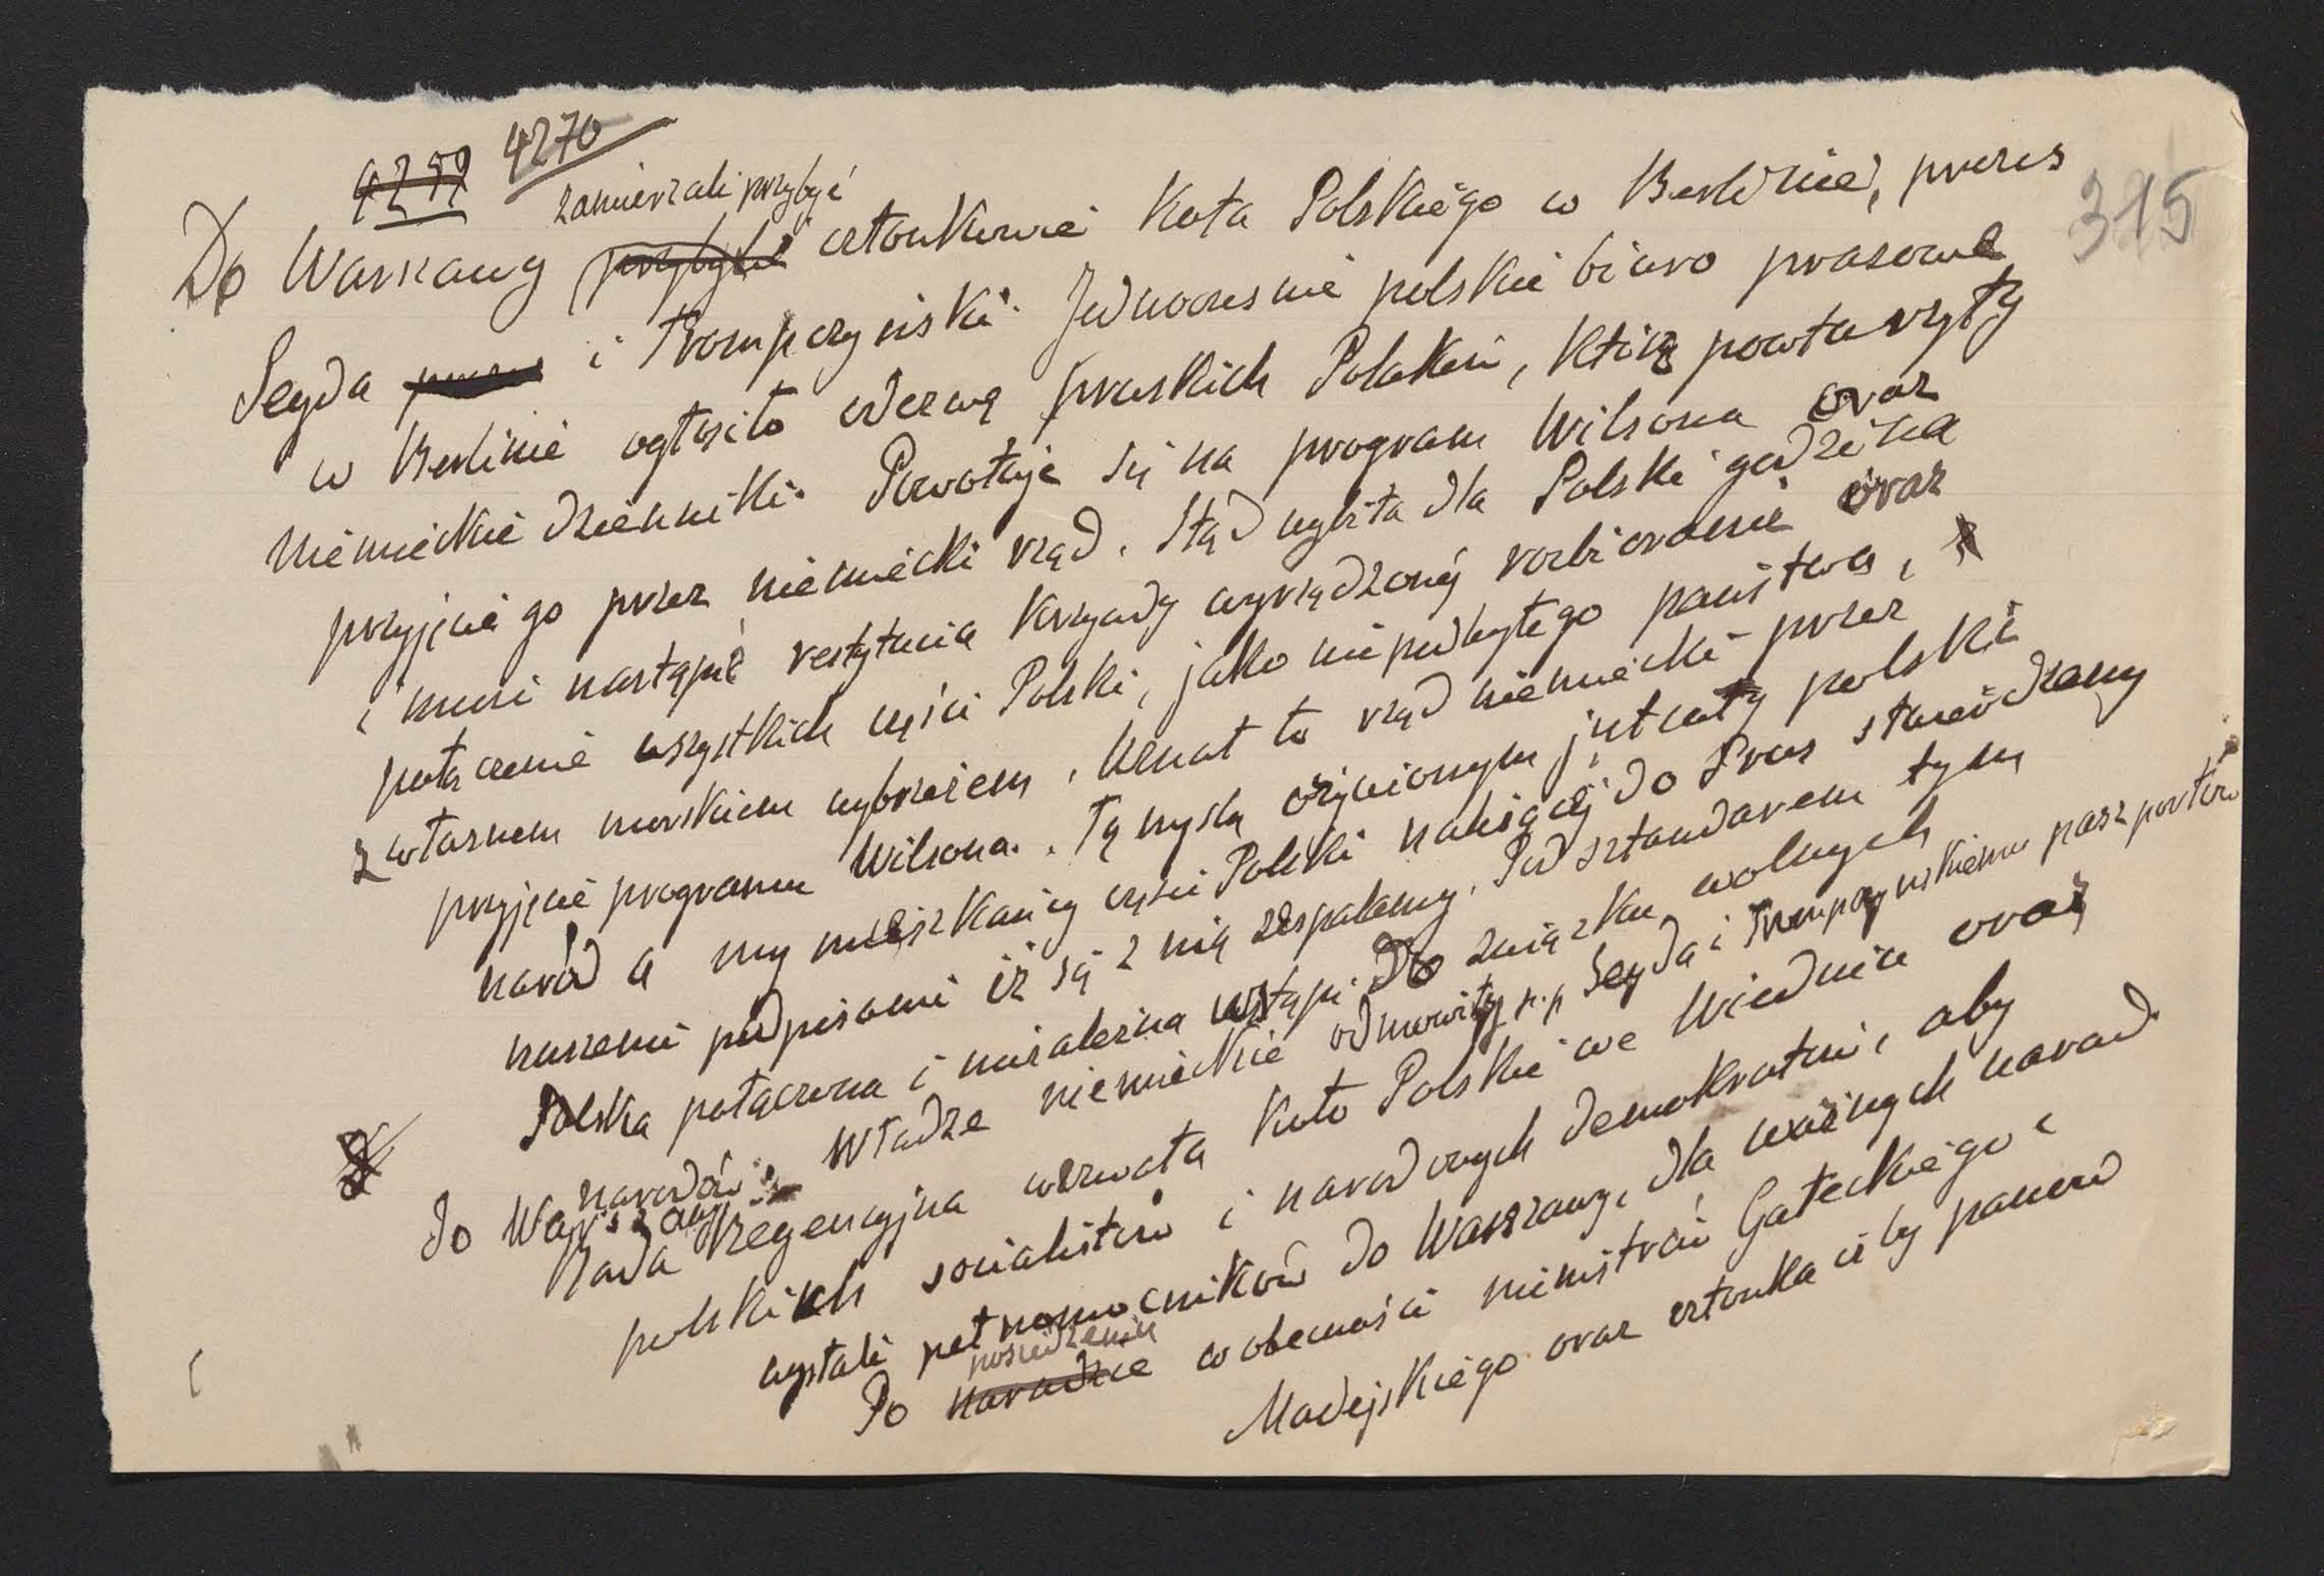 4259 4270
315
zamierzali przybyć
Do Warszawy przybyli członkowie Koła Polskiego w Berlinie, prezes
Seyda prezes i Trompczyński. Jednocześnie polskie biuro prasowe
w Berlinie ogłosiło odezwę pruskich Polaków, którą powtarzyły
niemieckie dzienniki. Powołuje się na program Wilsona oraz
przyjęcie go przez niemiecki rząd. Stąd wybiła dla Polski godzina
i musi nastąpić restytucia krzywdy wyrządzonej rozbiorami oraz
połączenie wszystkich części Polski, jako niepodległego państwa,
z własnem morskiem wybrzeżem. Uznał to rząd niemiecki przez
przyjęcie programu Wilsona. Tą myslą ożywionym jest cały polski
naród a my mieszkańcy części Polski należącej do Prus stwierdzamy
naszemi podpisami iż się z nią zespalamy. Pod sztandarem tym
Polska połączona i niezależna wstąpi do związku wolnych
narodów. Władze niemieckie odmówiły p.p Seyda i Trompczyńskiemu paszportów
do Warszawy
Rada Regencyjna wezwała Koło Polskie we Wiedniu oraz
polskich socialistów i narodowych demokratów, aby
wysłali pełnomocników do Warszawy, dla ważnych narad.
posiedzeniu
Po naradzie w obecności ministrów Gałeckiego i
Madejskiego oraz członka izby panów